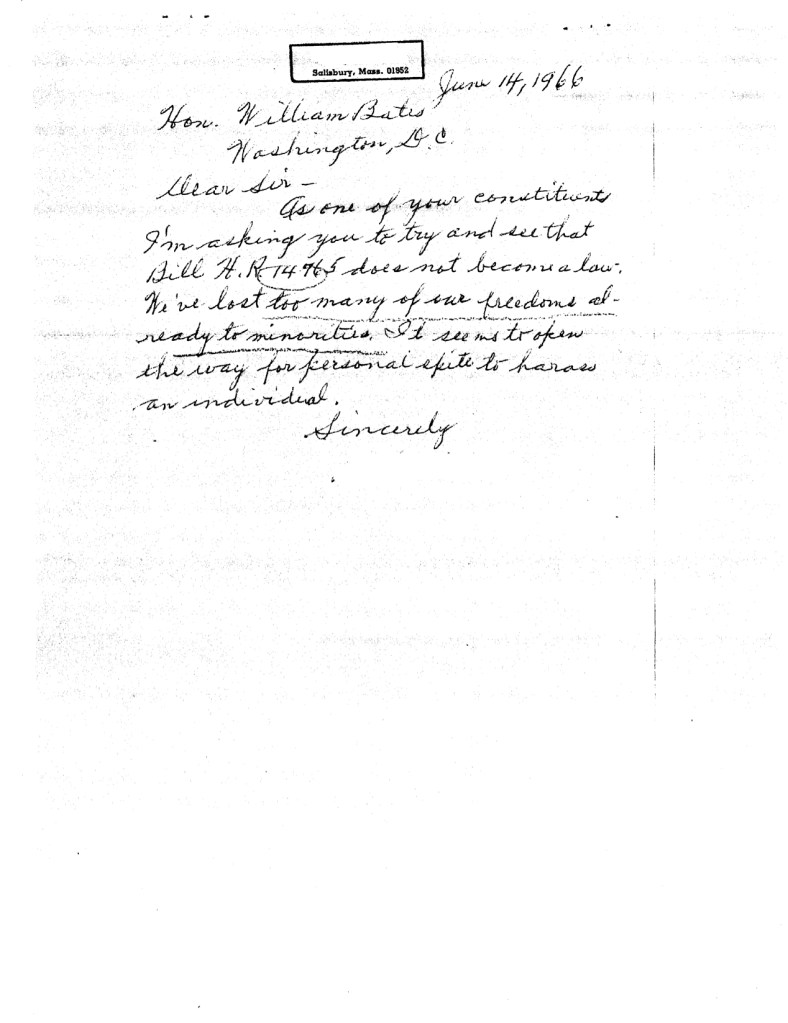 Salisbury, Mass. 01952
June 14, 1966
Hon. William Bates
Washington, D.C.
Dear Sir –
As one of your constituents
I'm asking you to try and see that
Bill H.R. 14765 does not become a law.
We've lost too many of our freedoms al-
ready to minorities. It seems to open
the way for personal spite to harass
an individual.
Sincerely